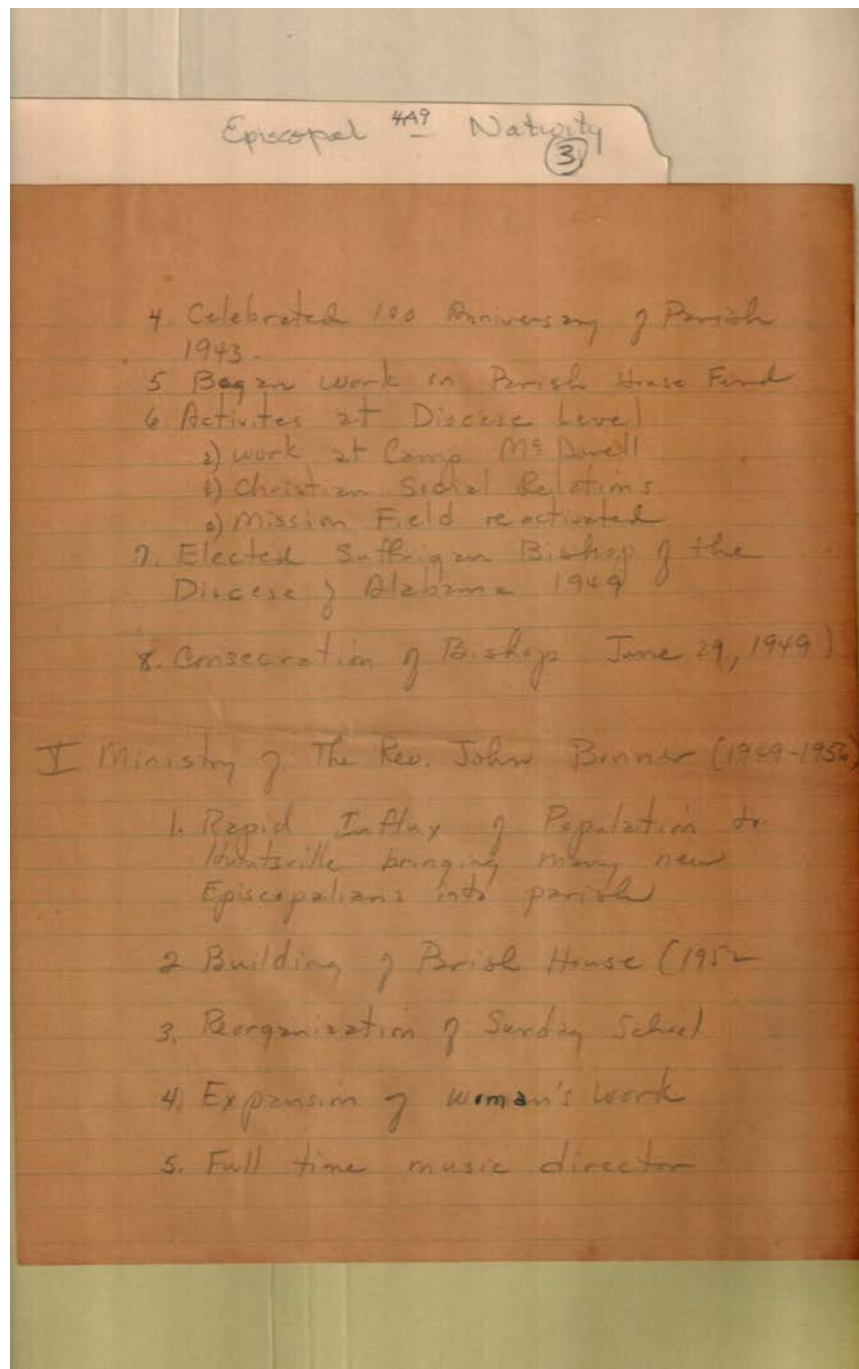 Episcopal 4A9 Nativity
3
4. Celebrated 100 Anniversary of Parish
1943.
5 Began work on Parish House Fund
6. Activites at Diocese Level
a) work at Camp Mc Dowell
b) Christian Social Relations
c) Mission Field reactivated
7. Elected Suffrigan Bishop of the
Diocese of Alabama 1949
8. Consecration of Bishop June 29, 1949)
V Ministry of The Rev. John Bonner (1949-1956)
1. Rapid Influx of Population to
Huntsville bringing many new
Episcopalians into parish
2 Building of Parish House (1952
3. Reorganization of Sunday School
4. Expansion of woman's work
5. Full time music director